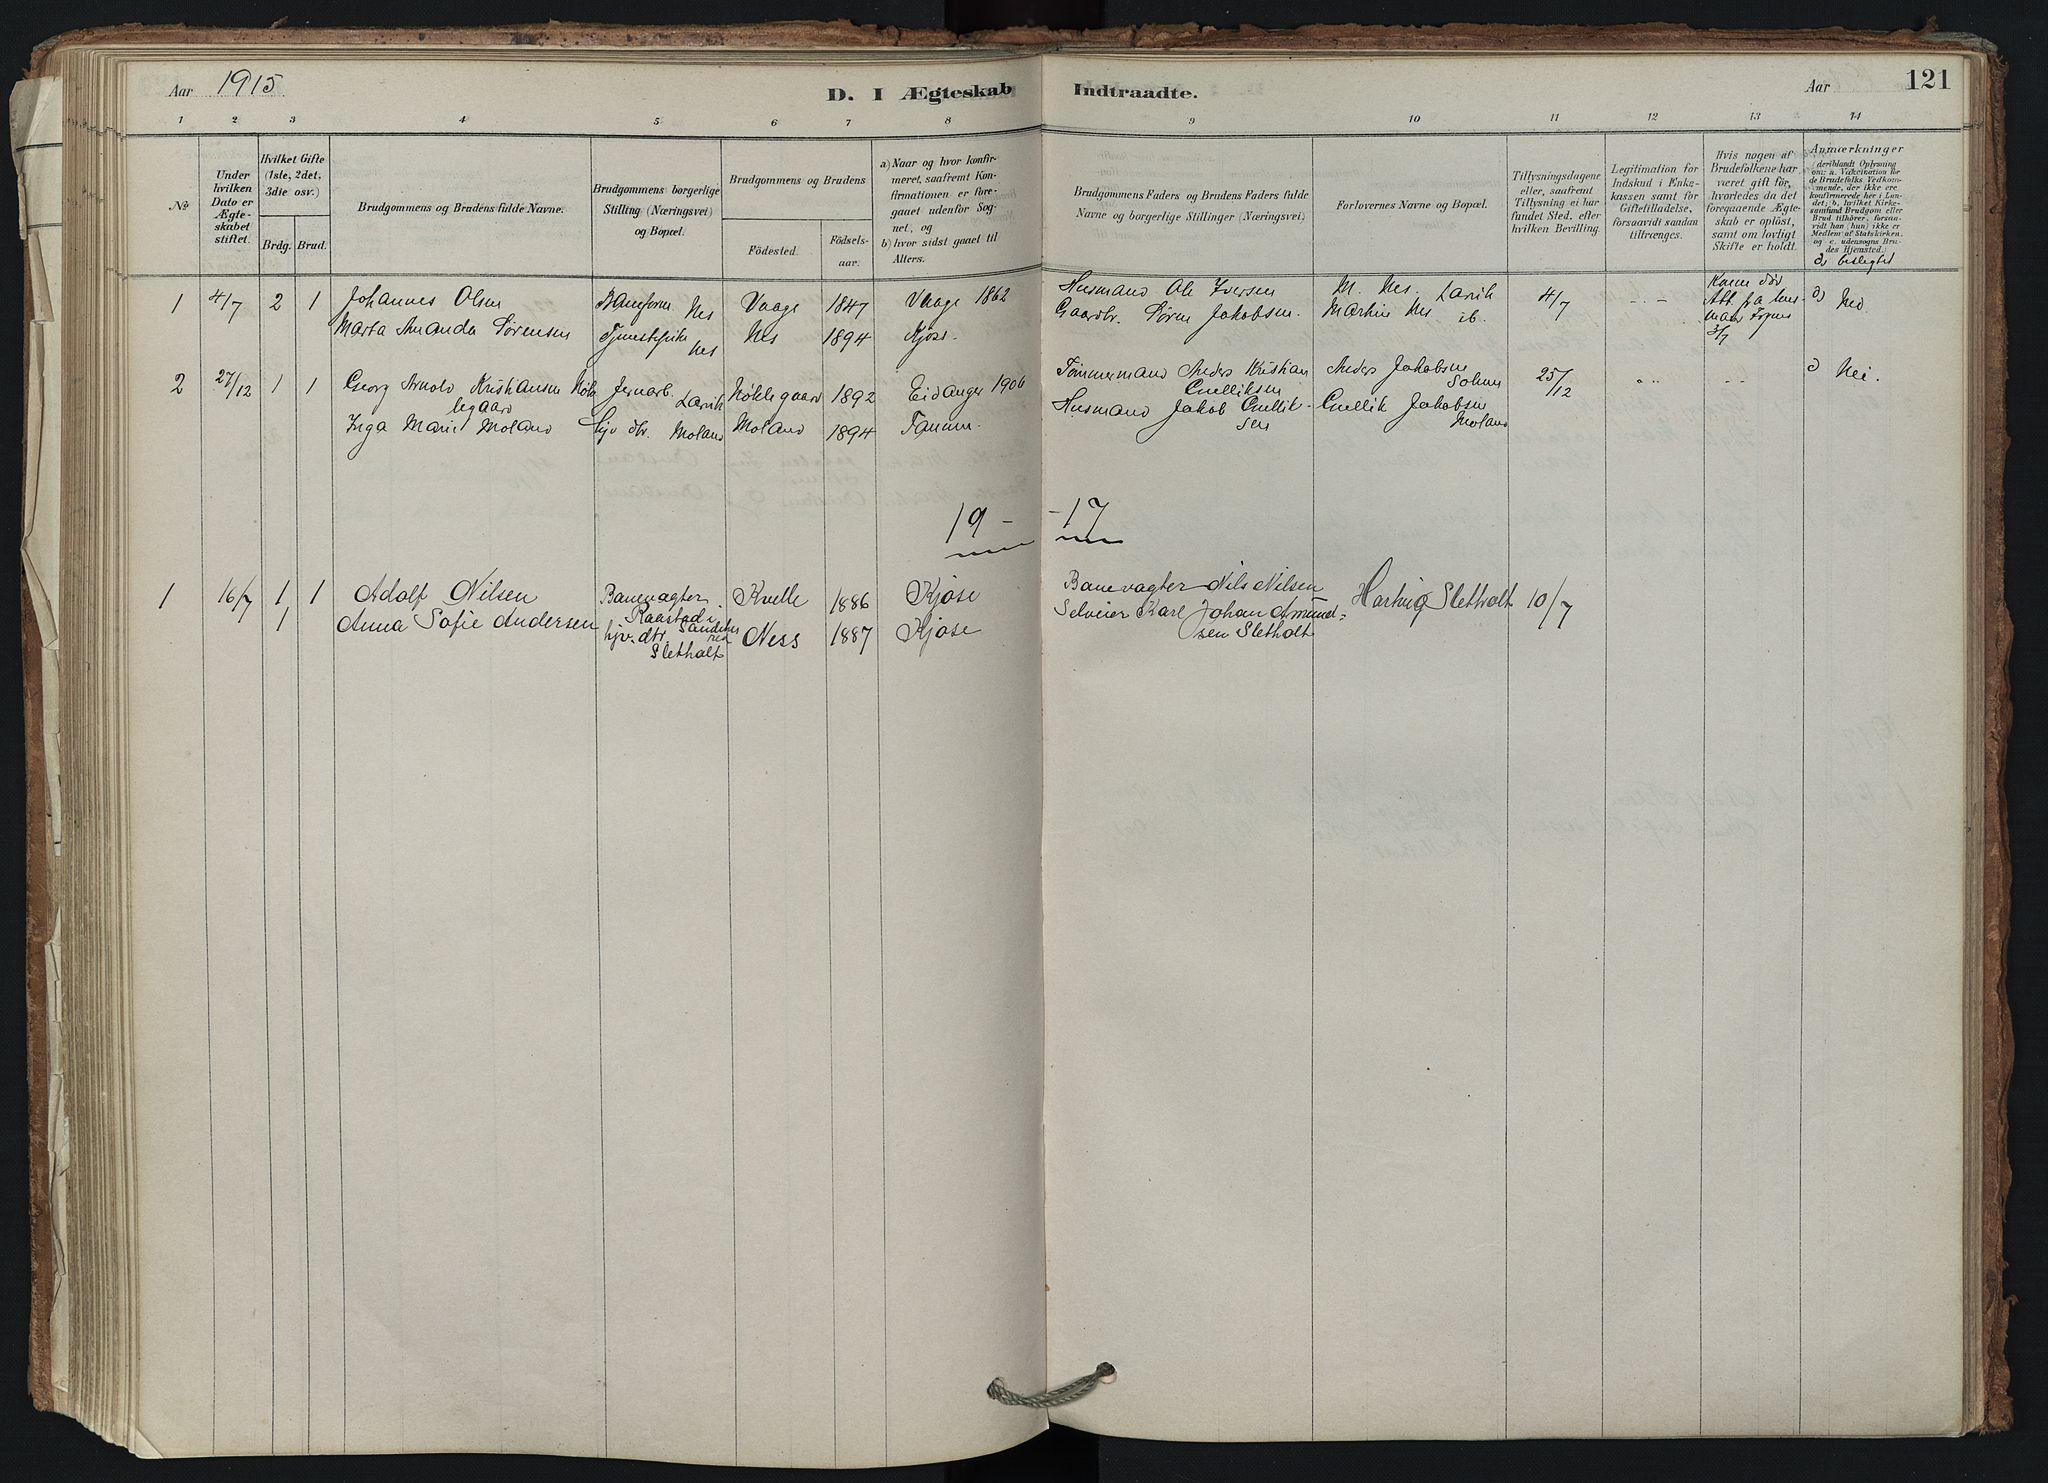 Aar 1915
D. I Ægteskab
Indtraadte.
Aar
121
1 2 3 4 5 6 7 8 9 10 11 12 13 14
№
Under hvilken Dato er Ægteskabet stiftet.
Hvilket Gifte (1ste, 2det, 3die osv.)
Brdg. Brud.
Brudgommens og Brudens fulde Navne.
Brudgommens borgerlige Stilling (Næringsvei) og Bopæl.
Brudgommens og Brudens
Födested.
Födselsaar.
a) Naar og hvor konfirmeret, saafremt Konfirmationen er foregaaet udenfor Sognet, og
b) hvor sidst gaaet til Alters.
Brudgommens Faders og Brudens Faders fulde Navne og borgerlige Stillinger (Næringsvei)
Forlovernes Navne og Bopæl.
Tillysningsdagene eller, saafremt Tillysning ei har fundet Sted, efter hvilken Bevilling.
Legitimation for Indskud i Enkekassen samt for Giftetilladelse, forsaavidt saadan tiltrænges.
Hvis nogen af Brudefolkene har været gift för, hvorledes da det foregaaende Ægteskab er oplöst, samt om lovligt Skifte er holdt.
Anmærkninger
deriblandt Oplysning om: a. Vakcination for de Brudefolks Vedkommende, der ikke ere konfirmerede her i Landet; b. hvilket Kirkesamfund Brudgom eller Brud tilhörer, forsaavidt han (hun) ikke er Medlem af Statskirken, og c. udensogns Brudes Hjemsted.
d, beslegtet
1 4/7 2 1 Johannes Olsen Baneform. Nes Vaage 1847 Vaage 1862 Husmand Ole Iversen M. Nes. Larvik 4/7 Konen död Att. fra 3/7 d) Nei
Marta Amanda Sørensen Nes Nes 1894 Kjose. Gaardbr. Søren Jakobsen. Martin Nes ib.
2 27/12 1 1 Georg Arnold Kristiansen Nöklegaard Jernarb. Larvik Nöklegaard 1892 Eidanger 1906 Tömmermand Anders Kristian Gullíksen Anders Jakobsen 25/12 d) Nei.
Inga Marie Moland hjv. dtr. Moland Moland 1894 Tanum. Husmand Jakob Gulliksen Gullik Jakobsen Moland
19 - -17
1 16/7 1 1 Adolf Nilsen Banevagter Raastad i Sandeherred Kvelle 1886 Kjose Banevagter Nils Nilsen Hartvig Sletholt 10/7
1 Anna Sofie Andersen hjv. dtr. Sletholt Ness 1887 Kjose Selveier Karl Johan Amundsen Sletholt